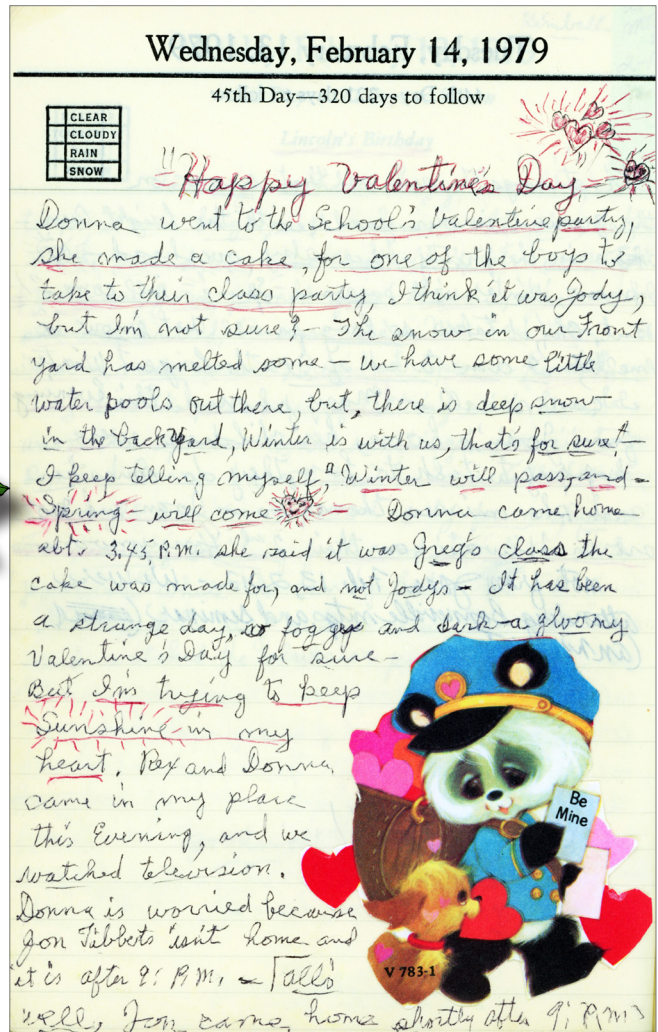 Wednesday, February 14, 1979
45th Day—320 days to follow
CLEAR
CLOUDY
RAIN
SNOW
"Happy Valentine's Day
Donna went to the School's Valentine party,
she made a cake, for one of the boys to
take to their class party, I think it was Jody,
but I'm not sure?- The snow in our Front
yard has melted some - we have some little
water pools out there, but, there is deep snow
in the back yard, Winter is with us, that's for sure!-
I keep telling myself, "Winter will pass, and-
Spring - will come - Donna came home
abt. 3:45 P.M. she said it was Greg's class the
cake was made for, and not Jodys - It has been
a strange day, so foggy and dark - a gloomy
Valentine's Day for sure-
But I'm trying to keep
Sunshine in my
heart. Rex and Donna
came in my place
this Evening, and we
watched television.
Donna is worried because
Jon Tibbets isn't home and
it is after 9: P.M. - all's
well, Jon came home shortly after 9: P.M.
Be
Mine
V 783-1